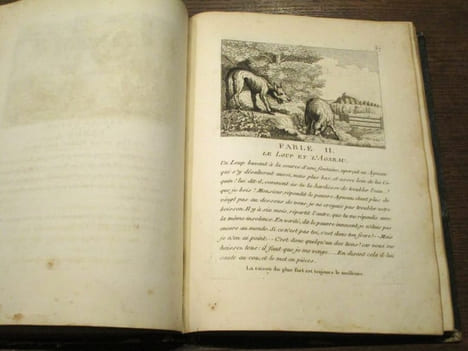 FABLE II.
LE LOUP ET L'AGNEAU.
Un Loup buvant à la source d'une fontaine, aperçut un Agneau
qui s'y désaltéroit aussi, mais plus bas, et assez loin de lui. Co
quin! lui dit-il, comment as tu la hardiesse de troubler l'eau
que je bois? Monseigneur, répondit le pauvre Agneau, étant plus de
vingt pas au dessous de vous, je ne croyois pas troubler votre
boisson. Il y a six mois, répartit l'autre, que tu me répondis avec
la même insolence. En vérité, dit le pauvre innocent, je n'étois pas
encore au monde. Si ce n'est pas toi, c'est donc ton frère! - Mais
je n'en ai point. - C'est donc quelqu'un des tiens! car vous me
haïssez tous: il faut que je me venge. En disant cela il lui
saute au cou, et le met en pièces.
La raison du plus fort est toujours la meilleure.